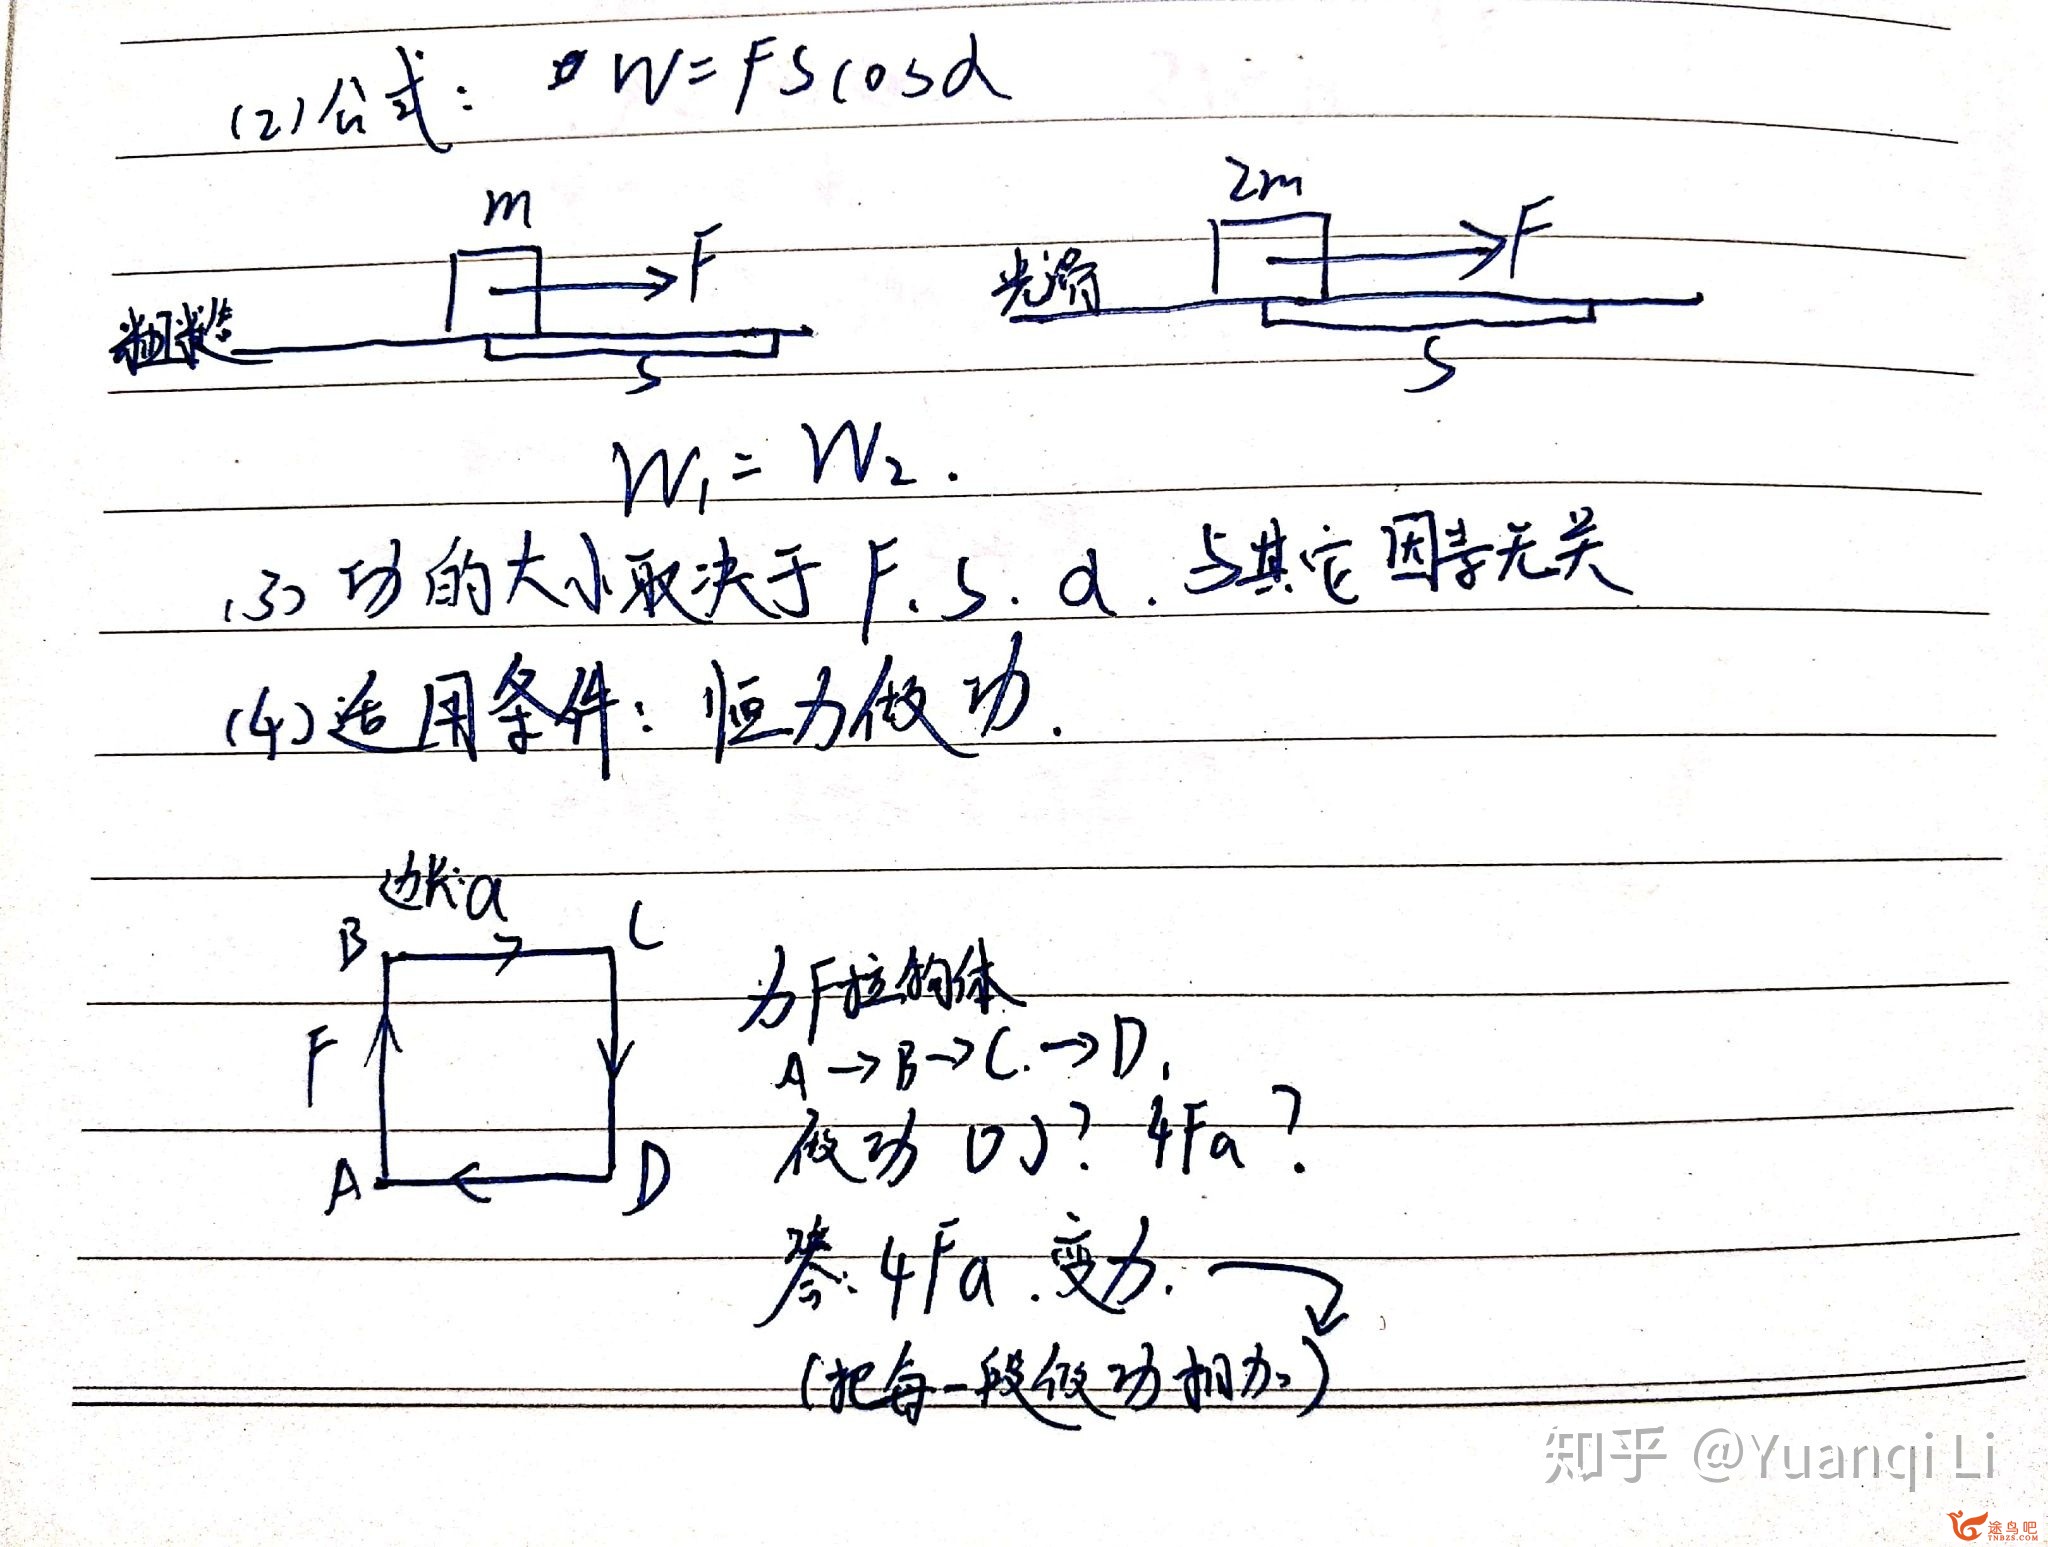 (2)公式： W=FScosα
m
F
粗糙
S
2m
F
光滑
S
W₁=W₂.
(3) 功的大小取决于F.S.α.与其它因素无关
(4)适用条件：恒力做功.
边长:a
B
C
F
A
D
力F拉物体
A→B→C.→D,
做功0J? 4Fa?
答:4Fa.变力.
(把每一段做功相加)
知乎 @Yuanqi Li
途鸟吧
TNBZS.COM